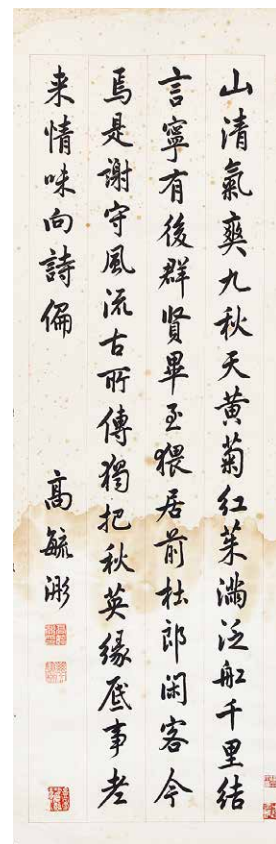 山清氣爽九秋天黄菊紅茱滿泛舡千里結
言寧有後群賢畢至猥居前杜郎閑客今
焉是謝守風流古所傳獨把秋英緣底事老
来情味向詩偏
高毓浵